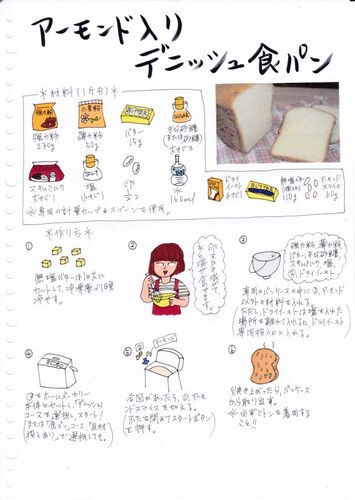 アーモンド入り
デニッシュ食パン
＊材料(1斤分)＊
強力粉
230g
薄力粉
50g
バター
15g
きび砂糖
大さじ3
スキムミルク
大さじ1
塩
小さじ1
卵
水
160ml
ドライ
イースト
無塩バター
110g
アーモンド
スライス
60g
※専用の計量カップ&スプーンを使用。
＊作り方＊
①
無塩バターは1cm大に
カットして、冷蔵庫で1日
冷やす。
②
③
強力粉、薄力粉
スキムミルク、塩、
②、ドライイースト
専用のパンケースの中に②、アーモンド
以外の材料を入れる。
ただし、ドライイーストは塩を入れた
場所を離れて入れるか、ドライイースト
専用投入口に入れる。
④
③をホームベーカリー
本体にセットし、「デニッシュ」
コースを選択し、スタート!
⑤
アーモンド
合図があったら、①、アーモ
ンドスライスを加える。
ふたを閉めてスタートボタン
を押す。
⑥
焼き上がったら、パンケース
から取り出す。
※必ずミトンを着用する
こと!!